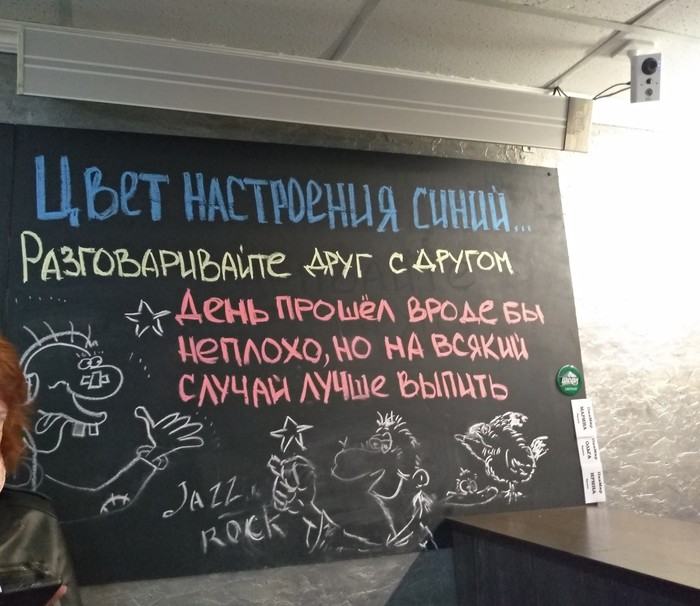 Цвет настроения синий...
Разговаривайте друг с другом
День прошёл вроде бы
неплохо, но на всякий
случай лучше выпить
JAZZ
ROCK
МАРИНА
ОЛЬГА